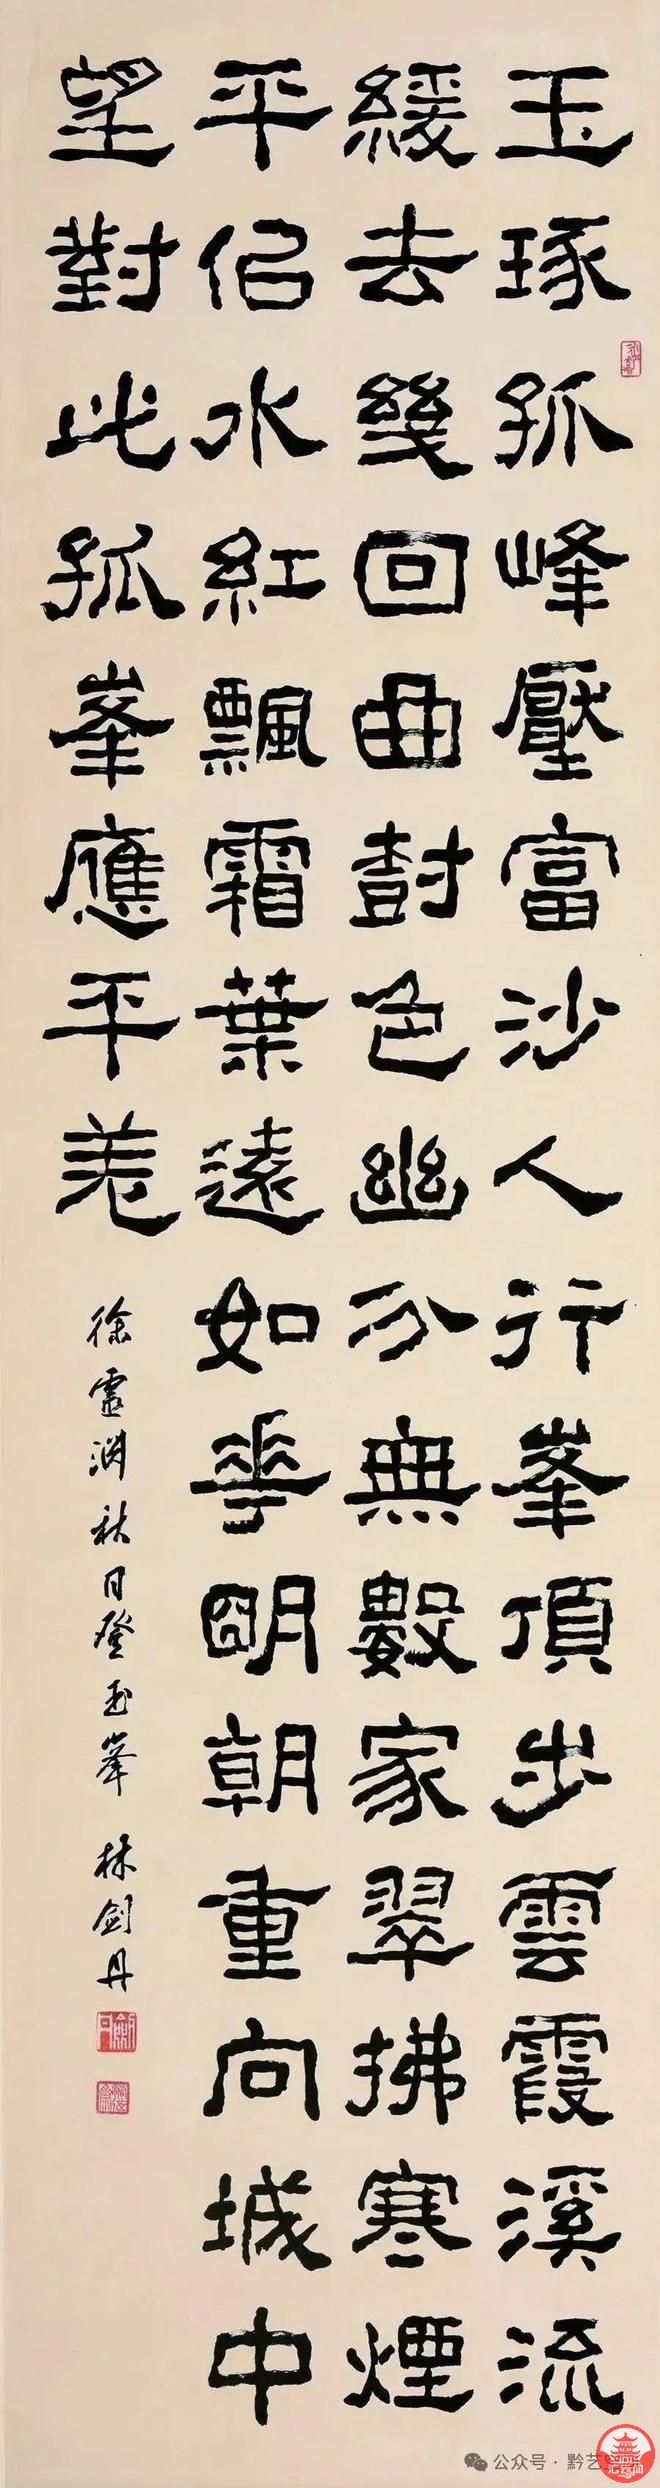 玉琢孤峰壓富沙人行峯頂步雲霞溪流
緩去幾回曲尌色幽分無數家翠拂寒煙
平佀水紅飄霜葉遠如花明朝重向城中
望對此孤峯應平差
徐靈淵秋日登玉峯 林劍丹
公众号·黔艺